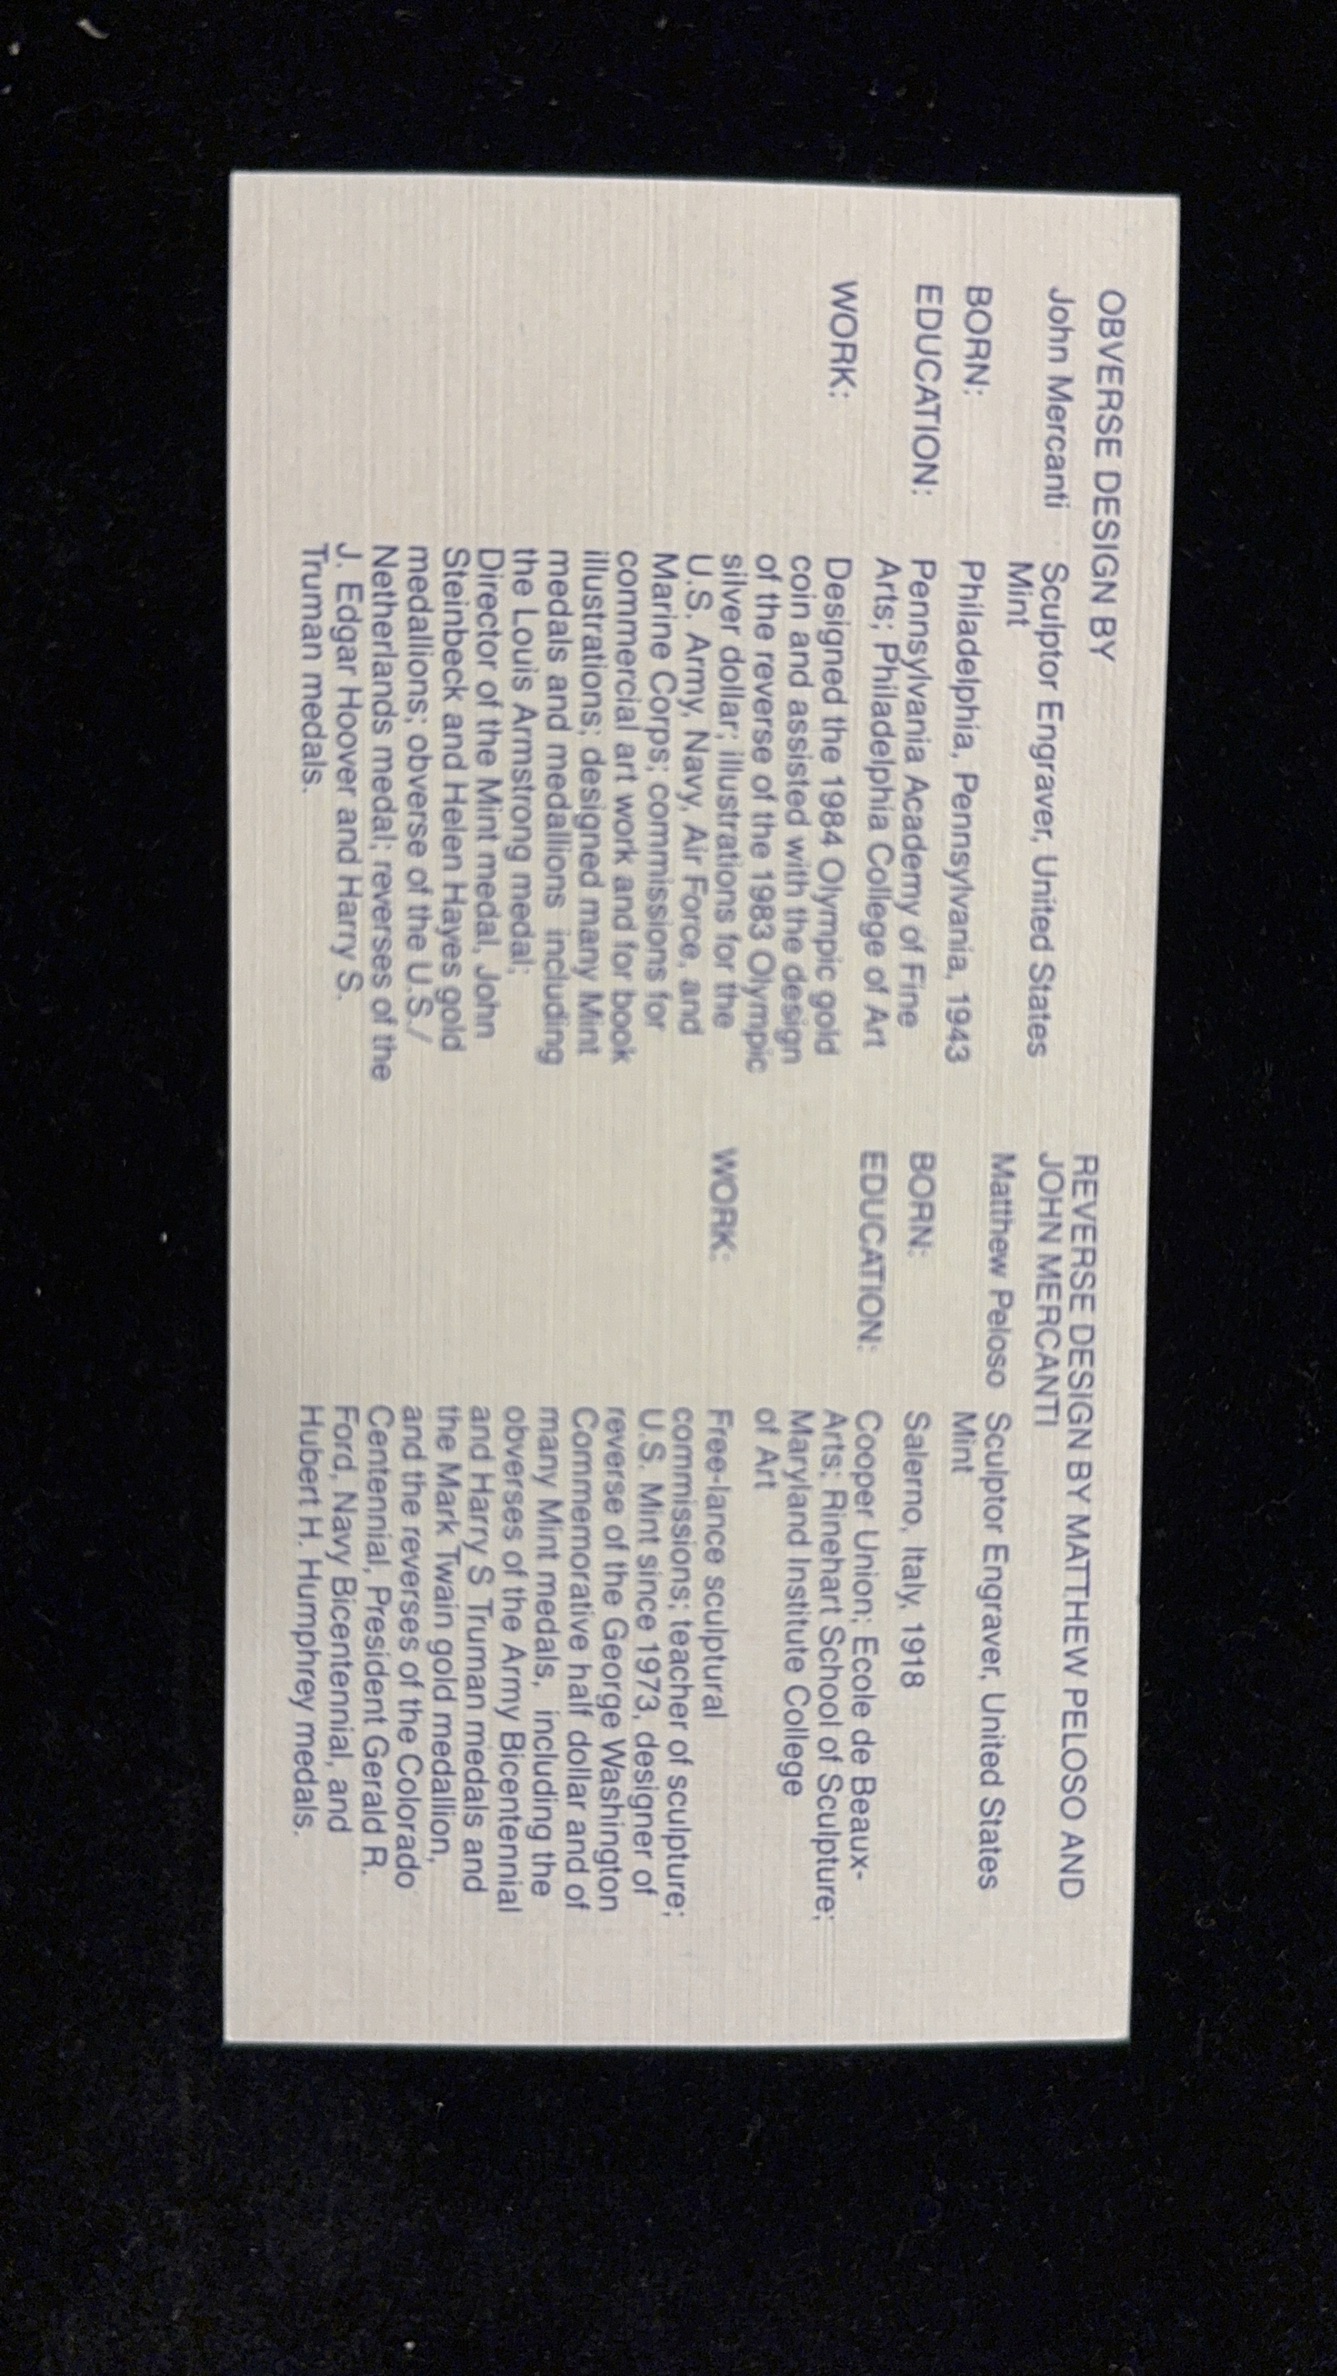 OBVERSE DESIGN BY
John Mercanti Sculptor Engraver, United States
Mint
BORN: Philadelphia, Pennsylvania, 1943
EDUCATION: Pennsylvania Academy of Fine
Arts; Philadelphia College of Art
WORK: Designed the 1984 Olympic gold
coin and assisted with the design
of the reverse of the 1983 Olympic
silver dollar; illustrations for the
U.S. Army, Navy, Air Force, and
Marine Corps; commissions for
commercial art work and for book
illustrations; designed many Mint
medals and medallions including
the Louis Armstrong medal;
Director of the Mint medal, John
Steinbeck and Helen Hayes gold
medallions; obverse of the U.S./
Netherlands medal; reverses of the
J. Edgar Hoover and Harry S.
Truman medals.
REVERSE DESIGN BY MATTHEW PELOSO AND
JOHN MERCANTI
Matthew Peloso Sculptor Engraver, United States
Mint
BORN: Salerno, Italy, 1918
EDUCATION: Cooper Union; Ecole de Beaux-
Arts; Rinehart School of Sculpture;
Maryland Institute College
of Art
WORK: Free-lance sculptural
commissions; teacher of sculpture;
U.S. Mint since 1973, designer of
reverse of the George Washington
Commemorative half dollar and of
many Mint medals, including the
obverses of the Army Bicentennial
and Harry S Truman medals and
the Mark Twain gold medallion,
and the reverses of the Colorado
Centennial, President Gerald R.
Ford, Navy Bicentennial, and
Hubert H. Humphrey medals.